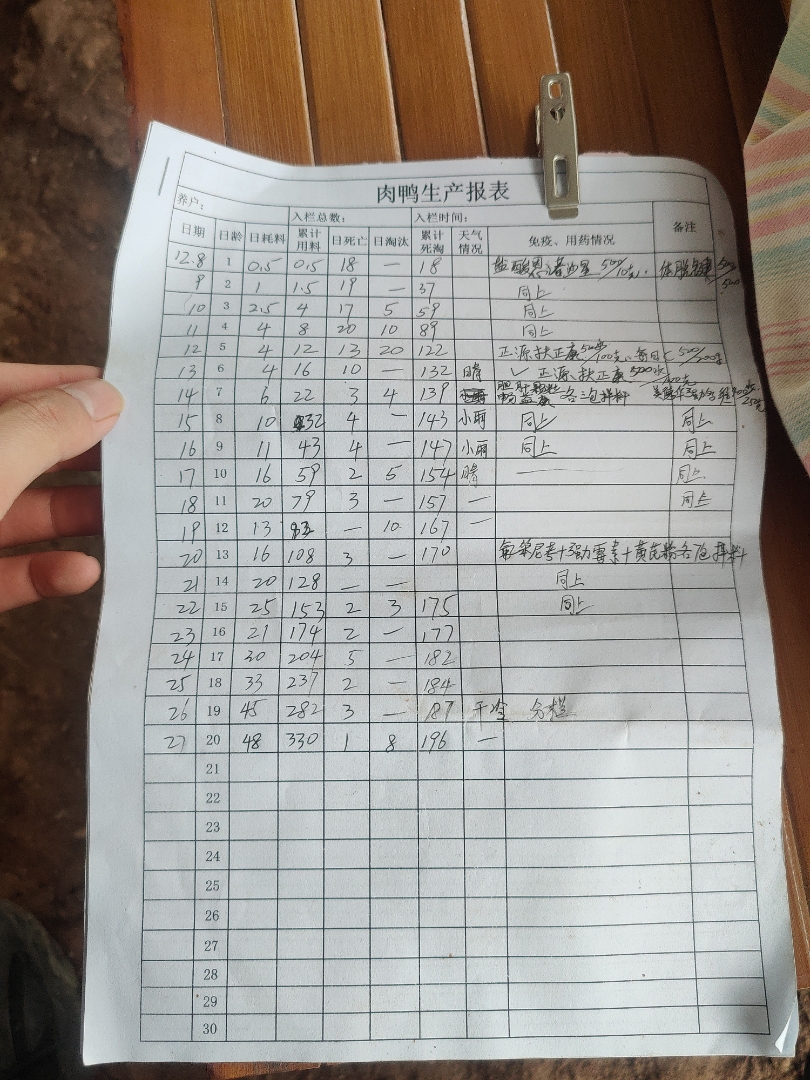 肉鸭生产报表
养户: 入栏总数: 入栏时间:
日期 日龄 日耗料 累计用料 日死亡 日淘汰 累计死淘 天气情况 免疫、用药情况 备注
12.8 1 0.5 0.5 18 — 18 盐酸恩诺沙星 500/10克
9 2 1 1.5 19 — 37 同上
10 3 2.5 4 17 5 59 同上
11 4 4 8 20 10 89 同上
12 5 4 12 13 20 122 正源扶正康 500水/100克
13 6 4 16 10 — 132 晴 ✓ 正源扶正康 500水/100克
14 7 6 22 3 4 139 小雨 胆肝颗粒 各一包拌料
15 8 10 32 4 — 143 小雨 同上 同上
16 9 11 43 4 — 147 小雨 同上 同上
17 10 16 59 2 5 154 晴 — 同上
18 11 20 79 3 — 157 — 同上
19 12 13 — 10 167 —
20 13 16 108 3 — 170 氟苯尼考+强力霉素+黄芪粉各1包拌料
21 14 20 128 — — 同上
22 15 25 153 2 3 175 同上
23 16 21 174 2 — 177
24 17 30 204 5 — 182
25 18 33 237 2 — 184
26 19 45 282 3 — 187 干冷 分栏
27 20 48 330 1 8 196 —
21
22
23
24
25
26
27
28
29
30